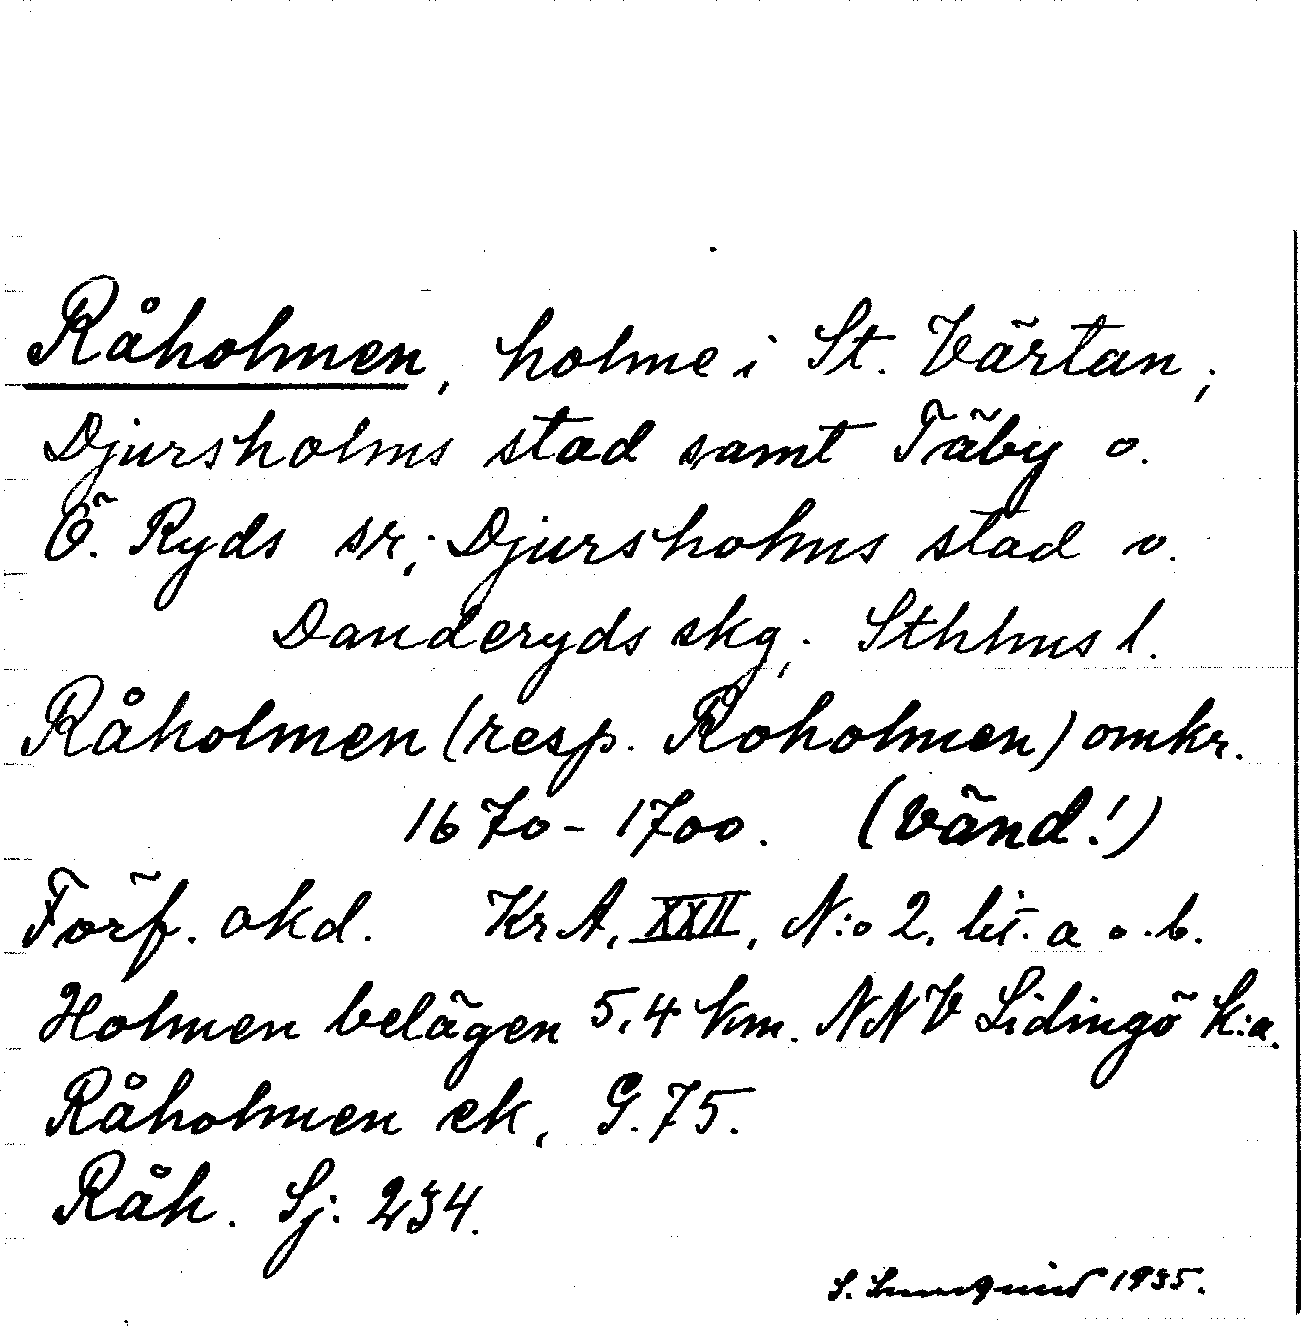 Råholmen, holme i St. Värtan;
Djursholms stad samt Täby o.
Ö. Ryds sr; Djursholms stad o.
Danderyds skg; Sthlms l.
Råholmen (resp. Roholmen) omkr.
1670-1700. (Vänd!)
Förf. okd. KrA, XXII, N:o 2. lit. a o. b.
Holmen belägen 5,4 km. NNV Lidingö k:a.
Råholmen ek, G. 75.
Råh. Sj: 234.
S. 1935.